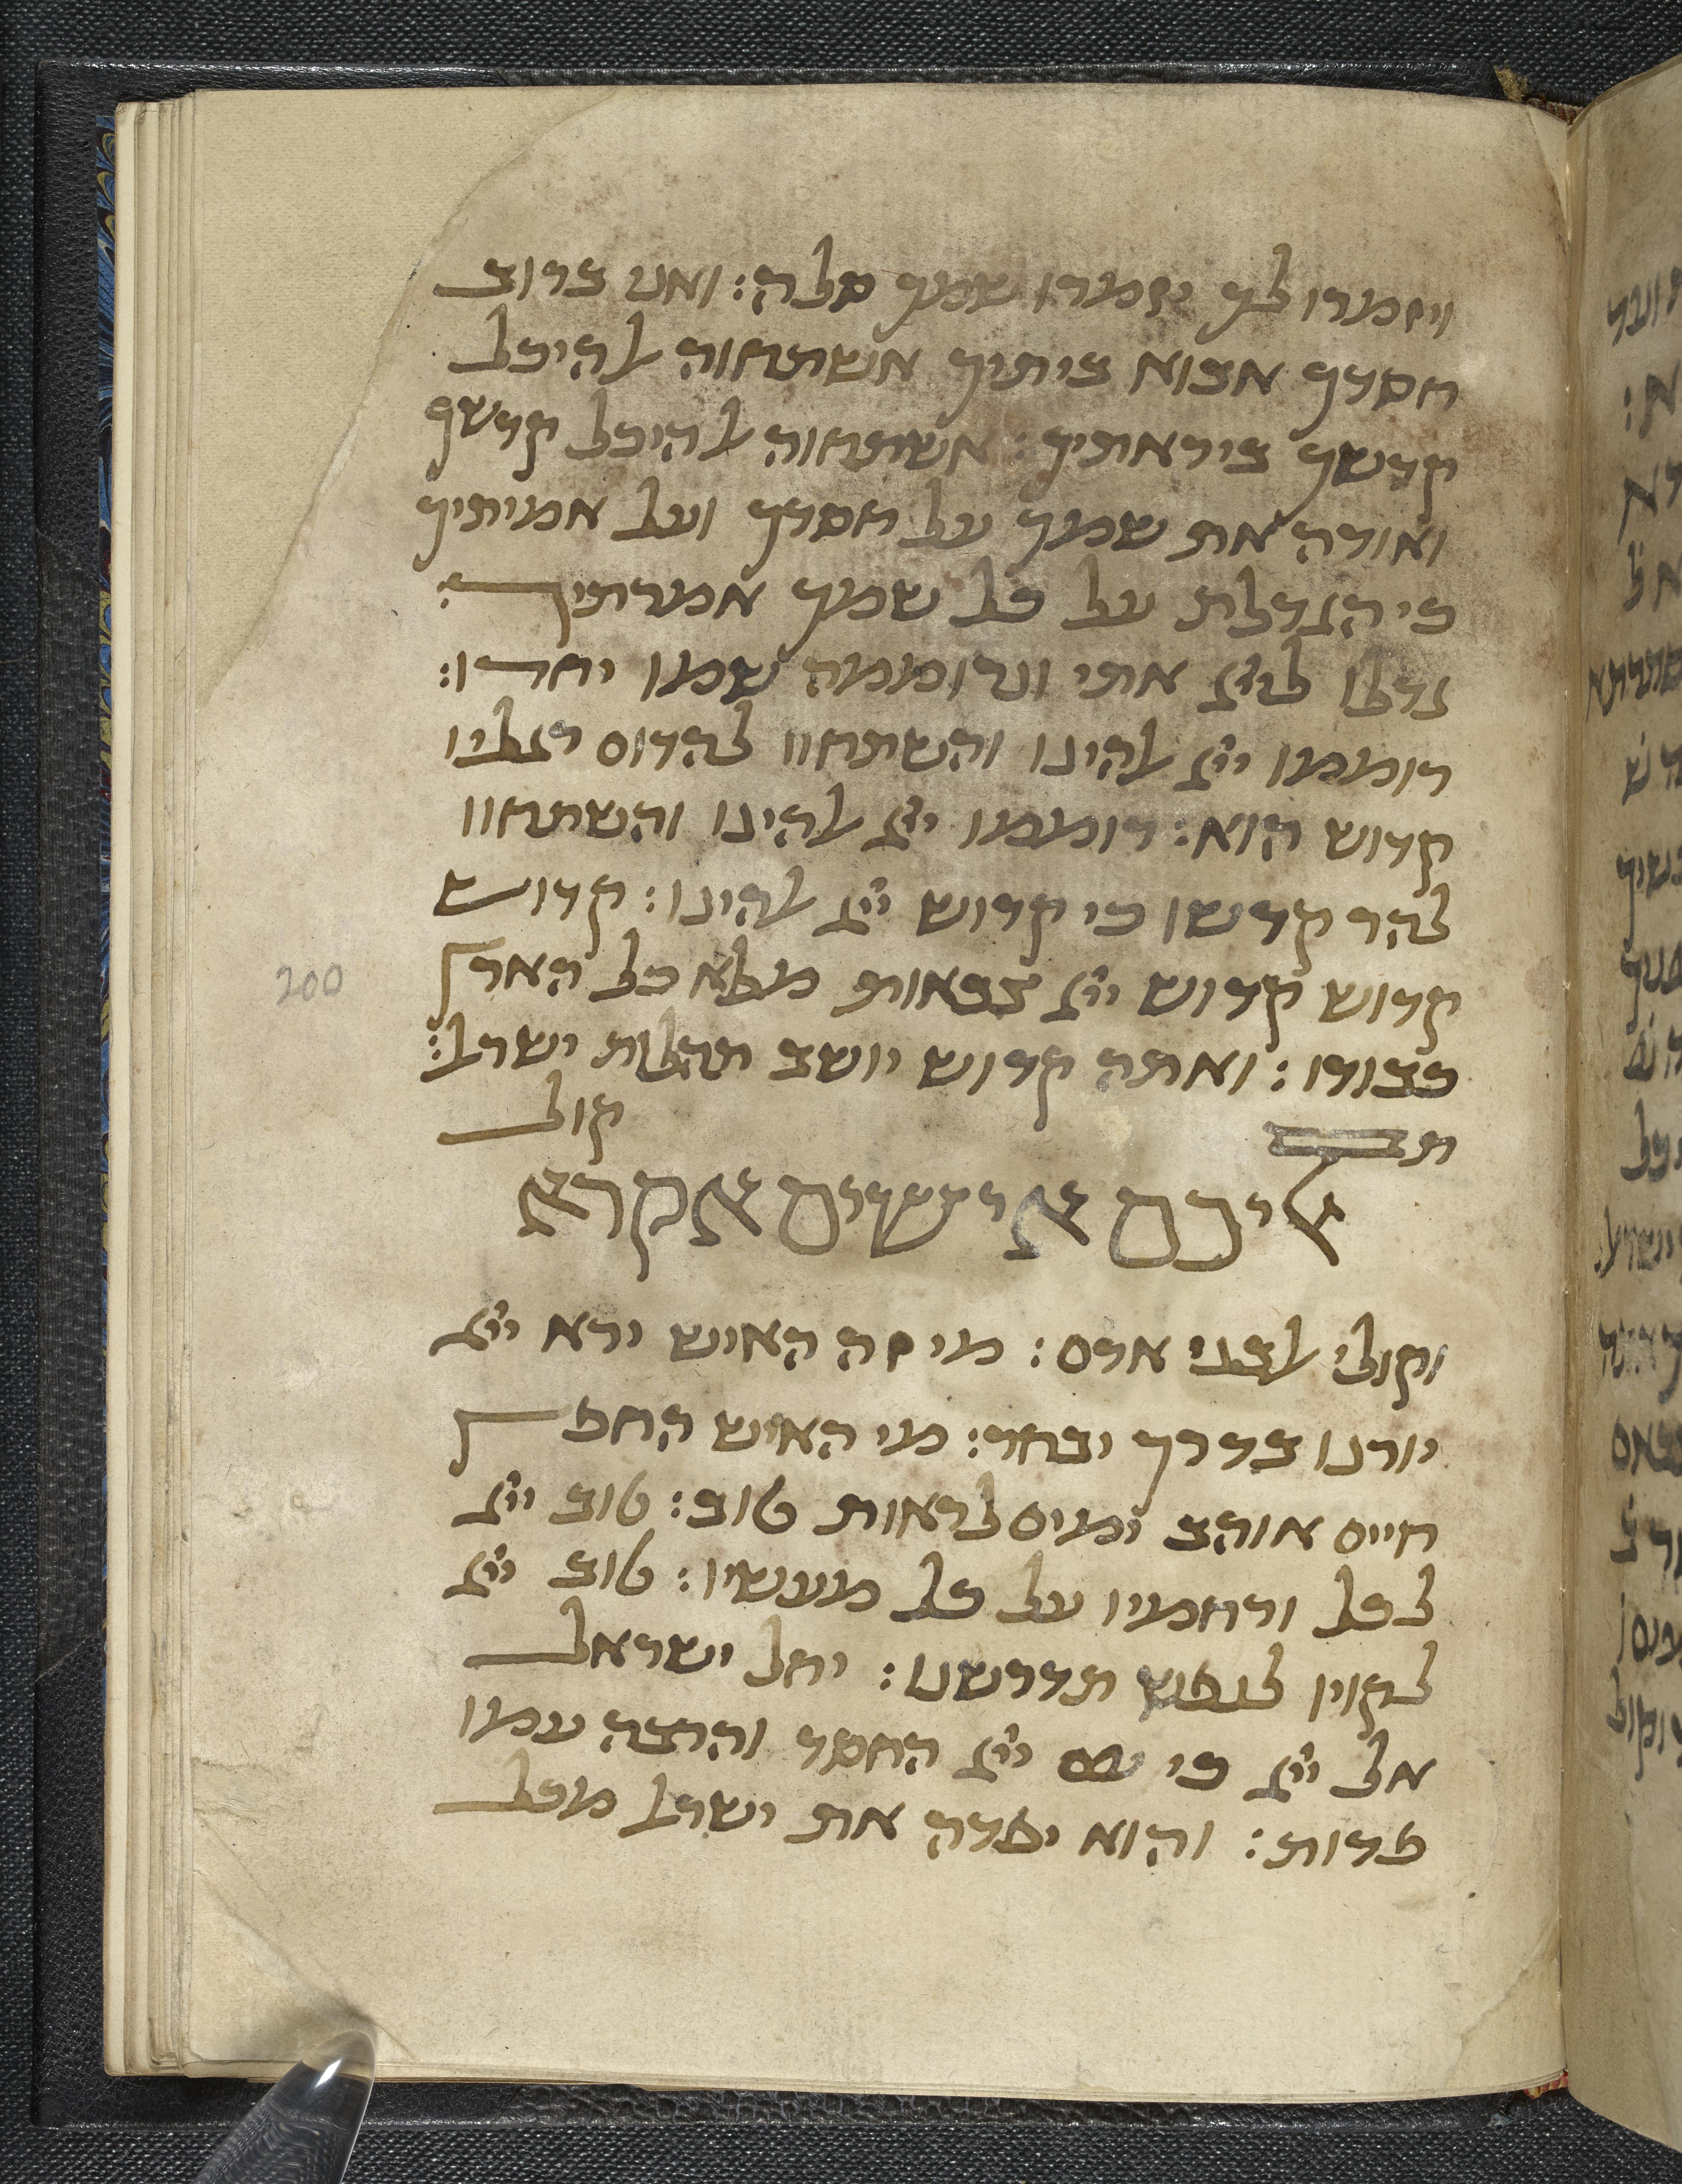 ויזמרו לך יזמרו שמך סלה: ואני ברוב
חסדך אבוא ביתיך אשתחוה להיכל
קדשך ביראתיך: אשתחוה להיכל קדשך
ואודה את שמך על חסדך ועל אמיתיך
כי הגדלת על כל שמך אמרתיך:
גדלו לייי אתי ונרוממה שמו יחדו:
רוממו ייי אלהינו והשתחוו להדום רגליו
קדוש הוא: רוממו ייי אלהינו והשתחוו
להר קדשו כי קדוש ייי אלהינו: קדוש
קדוש קדוש ייי צבאות מלא כל הארץ
כבודו: ואתה קדוש יושב תהלות ישראל:
קול
אליכם אישים אקרא
וקולי אל בני אדם: מי זה האיש ירא ייי
יורנו בדרך יבחר: מי האיש החפץ
חיים אוהב ימים לראות טוב: טוב ייי
לכל ורחמיו על כל מעשיו: טוב ייי
לקויו לנפש תדרשנו: יחל ישראל
אל ייי כי עם ייי החסד והרבה עמו
פדות: והוא יפדה את ישראל מכל
200